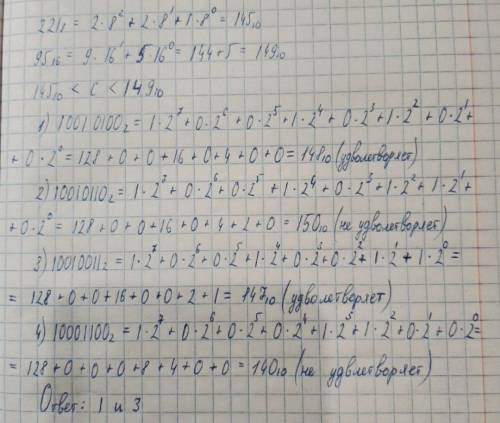 221₈ = 2·8² + 2·8¹ + 1·8⁰ = 145₁₀
95₁₆ = 9·16¹ + 5·16⁰ = 144+5 = 149₁₀
145₁₀ < c < 149₁₀
1) 10010100₂ = 1·2⁷ + 0·2⁶ + 0·2⁵ + 1·2⁴ + 0·2³ + 1·2² + 0·2¹ +
+ 0·2⁰ = 128 + 0 + 0 + 16 + 0 + 4 + 0 + 0 = 148₁₀ (удволетворяет)
2) 10010110₂ = 1·2⁷ + 0·2⁶ + 0·2⁵ + 1·2⁴ + 0·2³ + 1·2² + 1·2¹ +
+ 0·2⁰ = 128 + 0 + 0 + 16 + 0 + 4 + 2 + 0 = 150₁₀ (не удволетворяет)
3) 10010011₂ = 1·2⁷ + 0·2⁶ + 0·2⁵ + 1·2⁴ + 0·2³ + 0·2² + 1·2¹ + 1·2⁰ =
= 128 + 0 + 0 + 16 + 0 + 0 + 2 + 1 = 147₁₀ (удволетворяет)
4) 10001100₂ = 1·2⁷ + 0·2⁶ + 0·2⁵ + 0·2⁴ + 1·2³ + 1·2² + 0·2¹ + 0·2⁰ =
= 128 + 0 + 0 + 0 + 8 + 4 + 0 + 0 = 140₁₀ (не удвлетворяет)
Ответ: 1 и 3